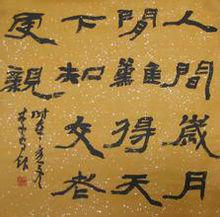 人間歲月
閒難得天
下知交老
更親